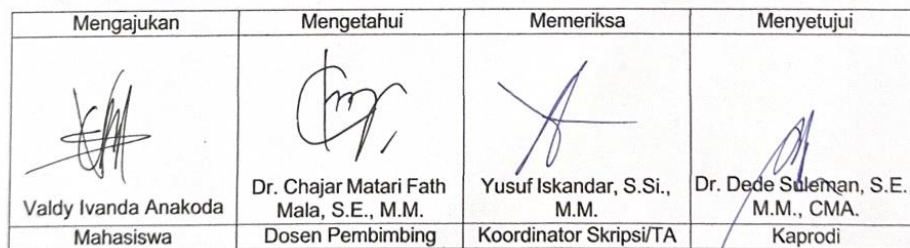 Mengajukan Mengetahui Memeriksa Menyetujui
Valdy Ivanda Anakoda
Dr. Chajar Matari Fath
Mala, S.E., M.M.
Yusuf Iskandar, S.Si.,
M.M.
Dr. Dede Suleman, S.E.
M.M., CMA.
Mahasiswa Dosen Pembimbing Koordinator Skripsi/TA Kaprodi